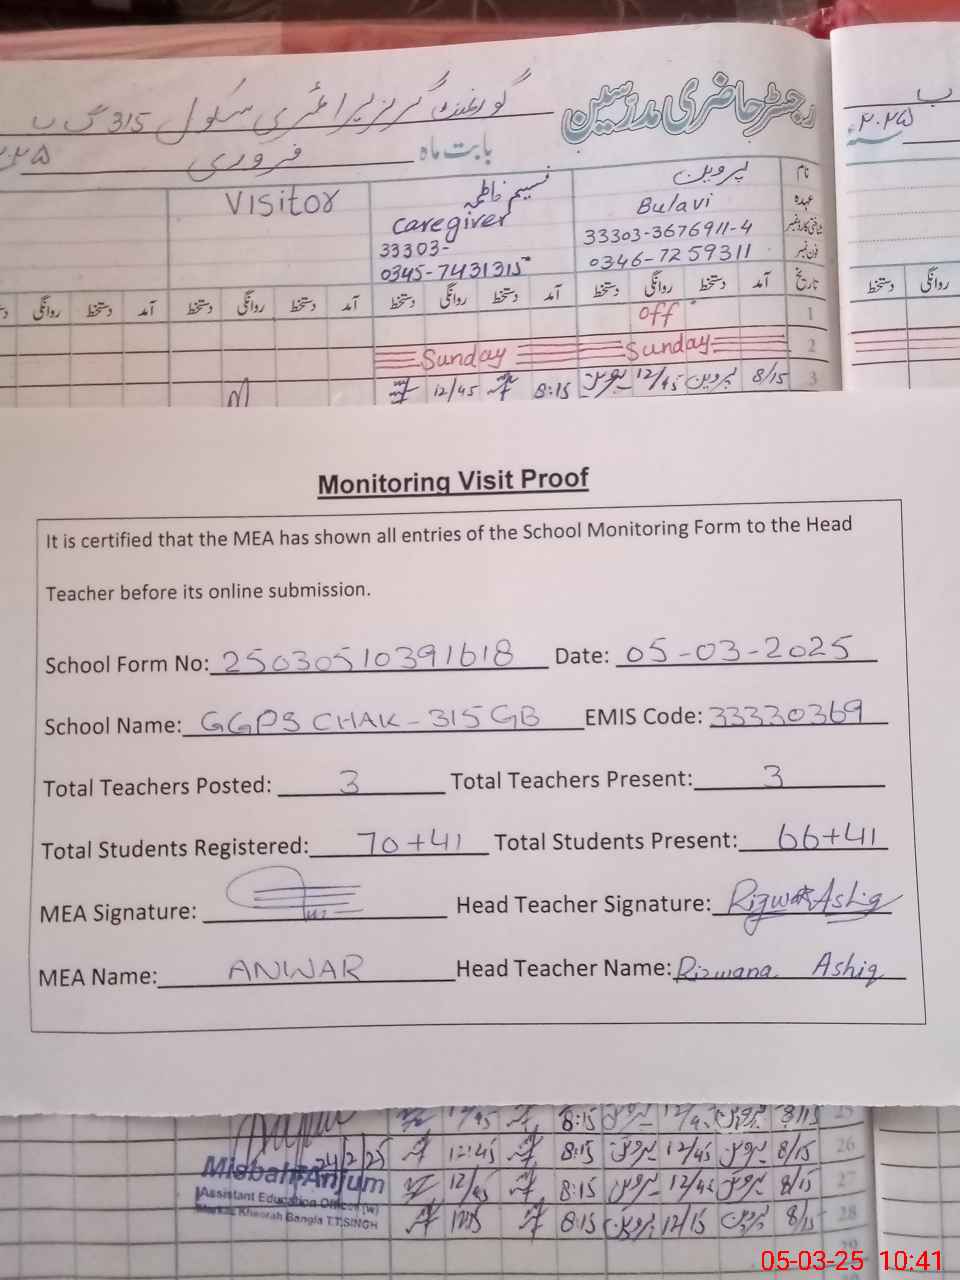 رجسٹر حاضری مدرسین گورنمنٹ گرلز پرائمری سکول 315 گ ب
بابت ماہ فروری
۲۰۲۵
نام پروین نسیم فاطمہ Visitor
عہدہ Bulavi Caregiver
33303-3676911-4 33303-
فون نمبر 0346-7259311 0345-7431315
تاریخ آمد دستخط روانگی دستخط آمد دستخط روانگی دستخط آمد دستخط روانگی دستخط آمد دستخط روانگی
دستخط روانگی
1 off
2 Sunday Sunday
3 8/15 پروین 12/45 پروین 8:15 12/45
Monitoring Visit Proof
It is certified that the MEA has shown all entries of the School Monitoring Form to the Head
Teacher before its online submission.
School Form No: 25030510391618 Date: 05-03-2025
School Name: GGPS CHAK-315GB EMIS Code: 33330369
Total Teachers Posted: 3 Total Teachers Present: 3
Total Students Registered: 70+41 Total Students Present: 66+41
MEA Signature: Head Teacher Signature: Rizwana Ashiq
MEA Name: ANWAR Head Teacher Name: Rizwana Ashiq
25 8/15 پروین 8:15
26 8/15 پروین 12/45 پروین 8:15 12:45
27 8/15 پروین 12/45 پروین 8:15 12/45
28 8/15 پروین 12/15 پروین 8:15
29
24/2/25
Misbah Anjum
Assistant Education Officer (W)
Markaz Kheorah Bangla T.T.SINGH
05-03-25 10:41